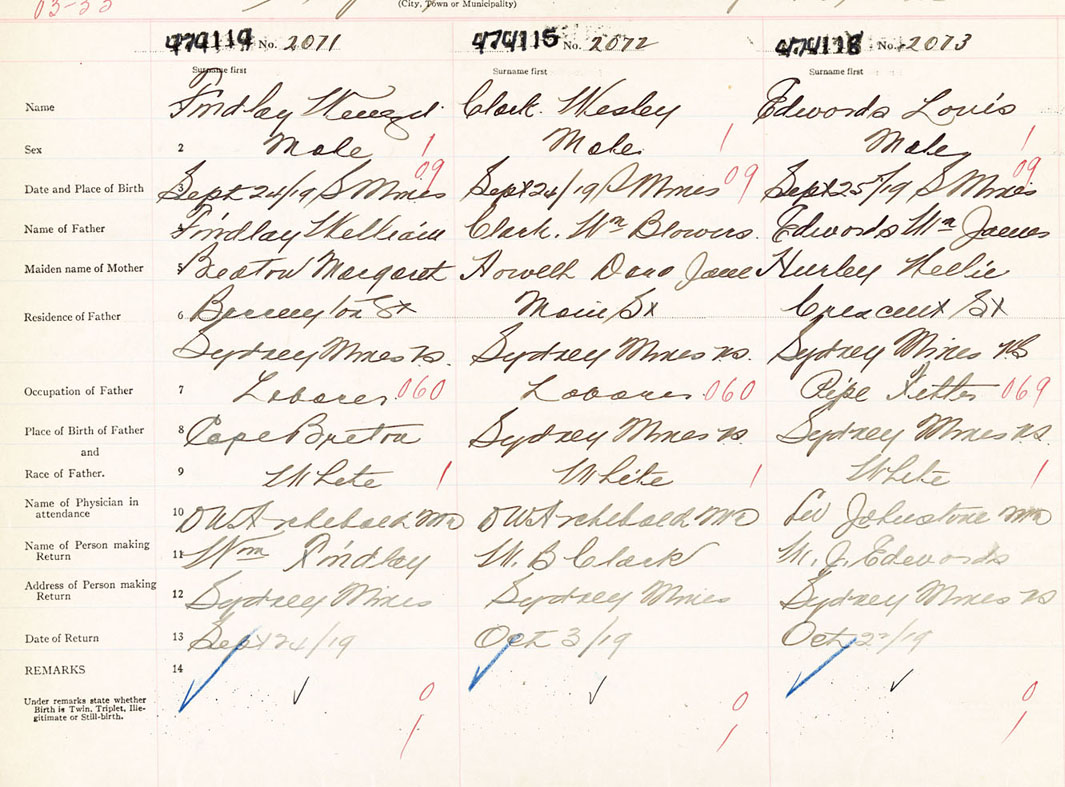 03-33
(City, Town or Municipality)
No. 2071 474115 No. 2072 No. 2073
Surname first Surname first Surname first
Name Findlay Clark. Wesley Edwards Louis
Sex 2 Male 1 Male 1 Male 1
09 09 09
Date and Place of Birth 3 Sept 24/19 S Mines Sept 24/19 S Mines Sept 25/19 S Mines
Name of Father 4 Findlay William Clark. Wm Blowers. Edwards Wm James
Maiden name of Mother 5 Beaton Margaret Howell Dora Jane Hurley Nellie
Residence of Father 6 St Main St Crescent St
Sydney Mines NS. Sydney Mines NS. Sydney Mines NS
Occupation of Father 7 Laborer 060 Laborer 060 Pipe Fitter 069
Place of Birth of Father 8 Cape Breton Sydney Mines NS Sydney Mines NS.
and
Race of Father. 9 White 1 White 1 White 1
Name of Physician in
attendance 10 DW Archibald MD DW Archibald MD LW Johnstone MD
Name of Person making
Return 11 Wm Findlay W. B Clark W. J. Edwards
Address of Person making
Return 12 Sydney Mines Sydney Mines Sydney Mines NS
Date of Return 13 Sept 24/19 Oct 3/19 Oct /19
REMARKS 14
Under remarks state whether
Birth is Twin, Triplet, Ille-
gitimate or Still-birth.
0 0 0
1 1 1